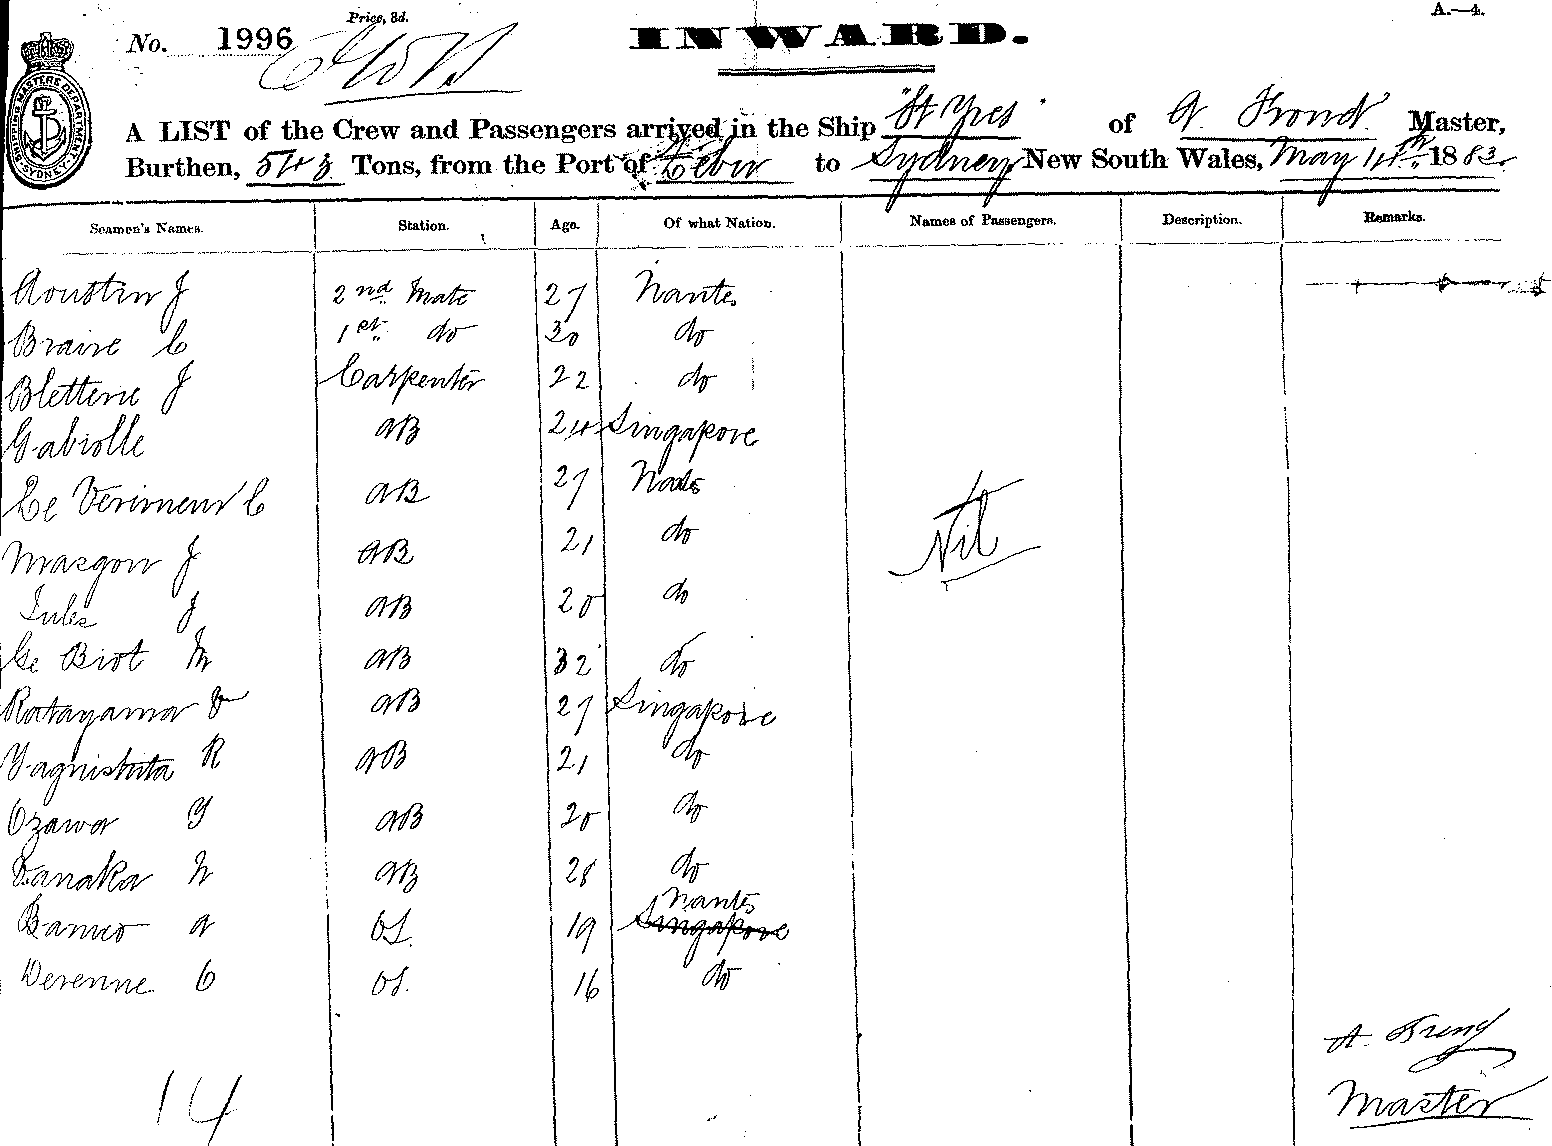 A.—4.
Price, 3d.
No. 1996
INWARD.
SHIPPING MASTERS DEPARTMENT SYDNEY
A LIST of the Crew and Passengers arrived in the Ship "St Yves" of A. Master,
Burthen, 543 Tons, from the Port of Zebu to Sydney New South Wales, May 1883.
Seamen's Names. Station. Age. Of what Nation. Names of Passengers. Description. Remarks.
Aoustin J 2nd Mate 27 Nantes
Braire C 1st do 30 do
Bletterie J Carpenter 22 do
Gabiolle AB 24 Singapore
Le Verimeur C AB 27 Nates
Masgou J AB 21 do
Jules J AB 20 do
Le Biot M AB 32 do
Katayama AB 27 Singapore
R AB 21 do
Ozawa Y AB 20 do
Tanaka N AB 28 do
A OS. 19 Singapore Nantes
Derenne O OS. 16 do
Nil
14
A.
Master